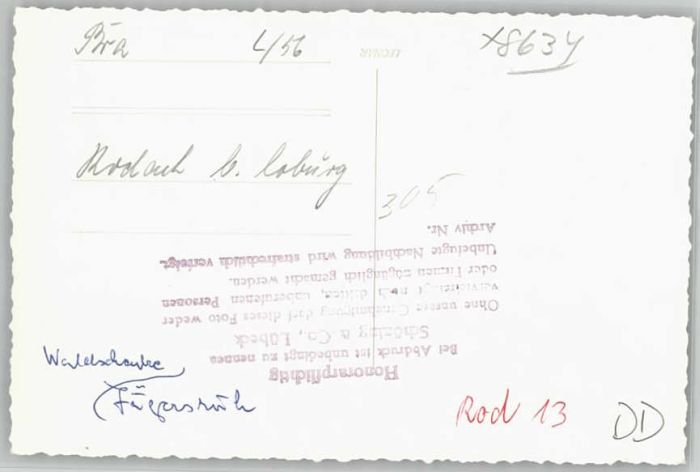 Bra 4/56 x8634
LEONAR
Rodach b. Coburg
305
Honorarpflichtig
Bei Abdruck ist unbedingt zu nennen
Schöning & Co., Lübeck
Ohne unsere Genehmigung darf dieses Foto weder
vervielfältigt noch dritten, unberufenen Personen
oder Firmen zugänglich gemacht werden.
Unbefugte Nachbildung wird strafrechtlich verfolgt.
Archiv Nr.
Waldschenke
Jägersruh
Rod 13
DD